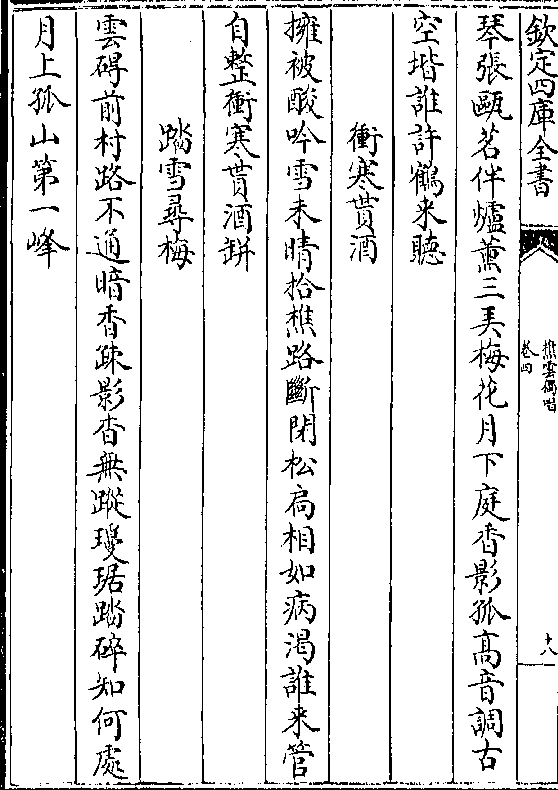 欽定四庫全書
樵雲獨唱
卷四
十八
琴張甌茗伴爐薰三弄梅花月下庭香影孤高音調古
空堦誰許鶴来聽
衝寒貰酒
擁被酸吟雪未晴拾樵路斷閉松扃相如病渴誰来管
自整衝寒貰酒缾
踏雪尋梅
雲碍前村路不通暗香疎影杳無蹤瓊琚踏碎知何處
月上孤山第一峰